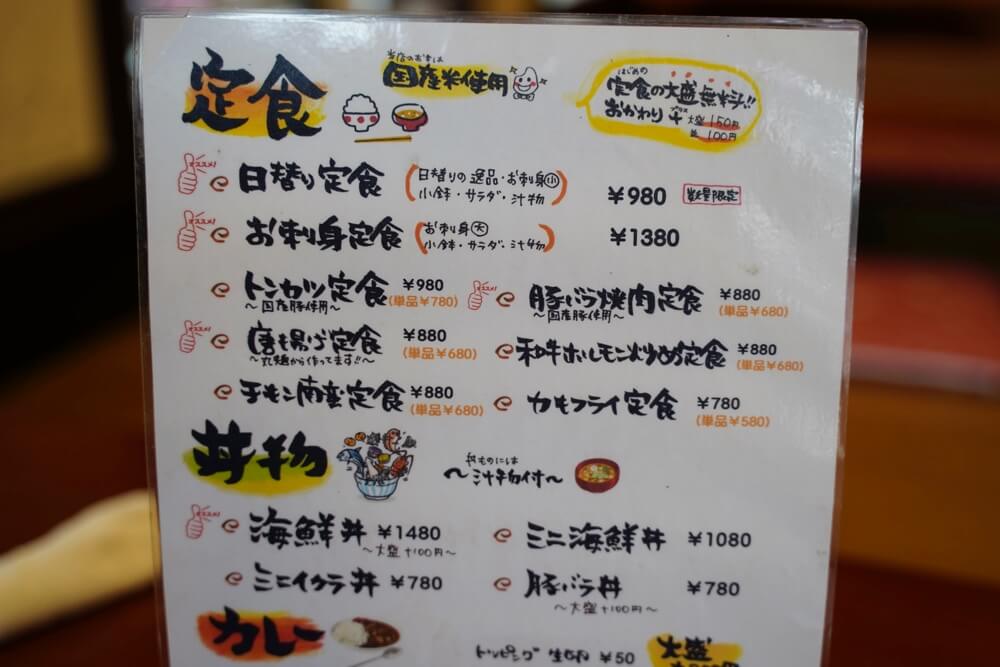 定食
当店のお米は
国産米使用
はじめの
定食の大盛無料!!
おかわり + プラス 大盛 150円
並 100円
オススメ! 日替り定食 (日替りの逸品・お刺身小 小鉢・サラダ・汁物) ¥980 数量限定
オススメ! お刺身定食 (お刺身大 小鉢・サラダ・汁物) ¥1380
トンカツ定食 ¥980
~国産豚使用~ (単品¥780)
オススメ! 豚バラ焼肉定食 ¥880
~国産豚使用~ (単品¥680)
オススメ! 唐揚げ定食 ¥880
~丸鶏から作ってます!!~ (単品¥680)
和牛ホルモン炒め定食 ¥880
(単品¥680)
チキン南蛮定食 ¥880
(単品¥680)
カキフライ定食 ¥780
(単品¥580)
丼物
丼ものには
~汁物付~
オススメ! 海鮮丼 ¥1480
~大盛+100円~
ミニ海鮮丼 ¥1080
ミニイクラ丼 ¥780
豚バラ丼 ¥780
~大盛+100円~
カレー
トッピング 生卵 ¥50
大盛